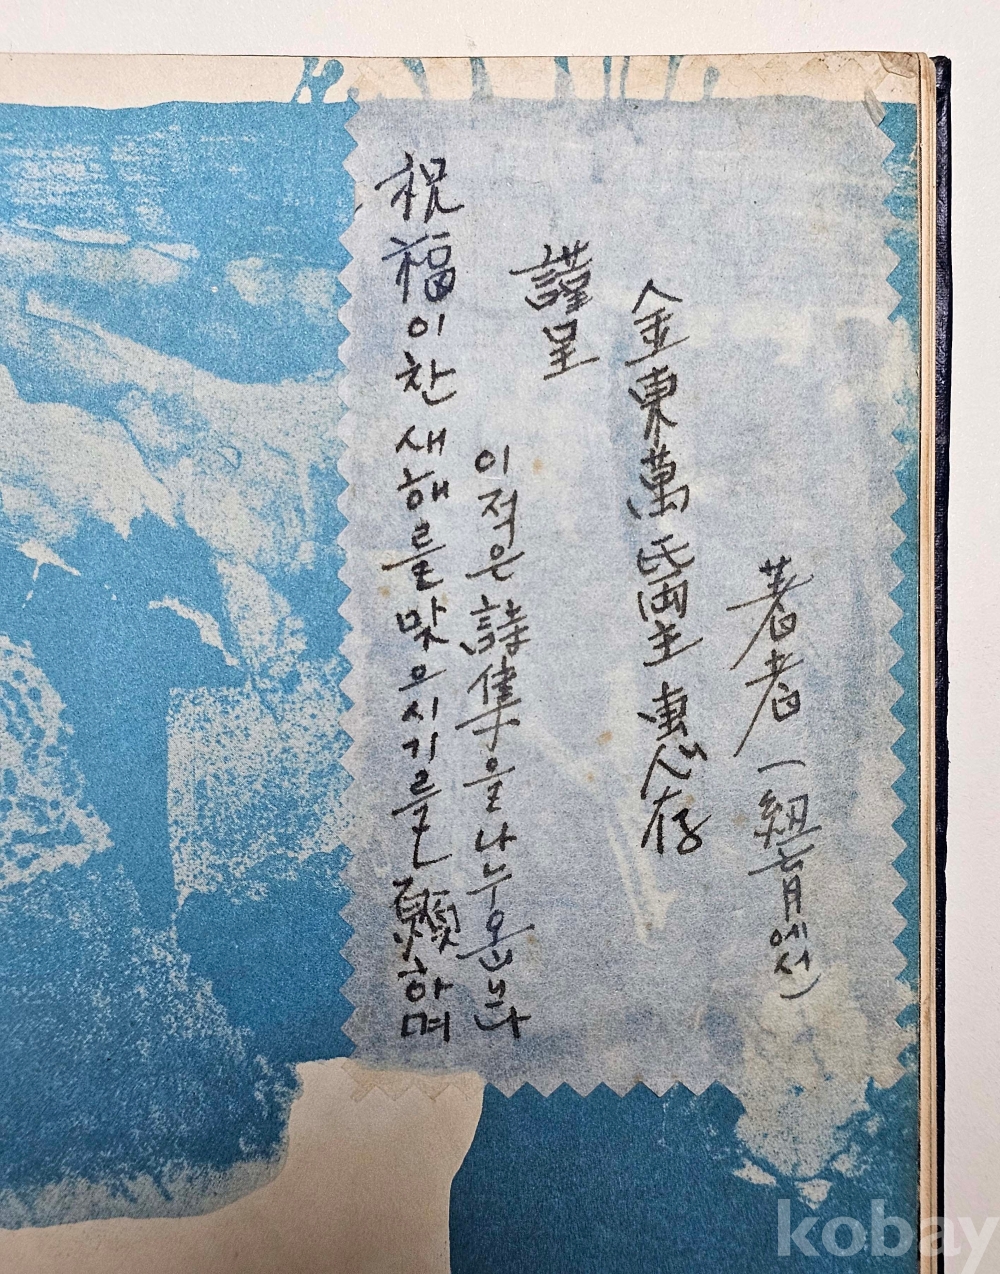 祝福이 찬 새해를 맞으시기를 願하며
이 적은 詩集을 나누옵니다
謹呈
金東萬 氏 両主 惠存
著者 (紐育에서)
kobay